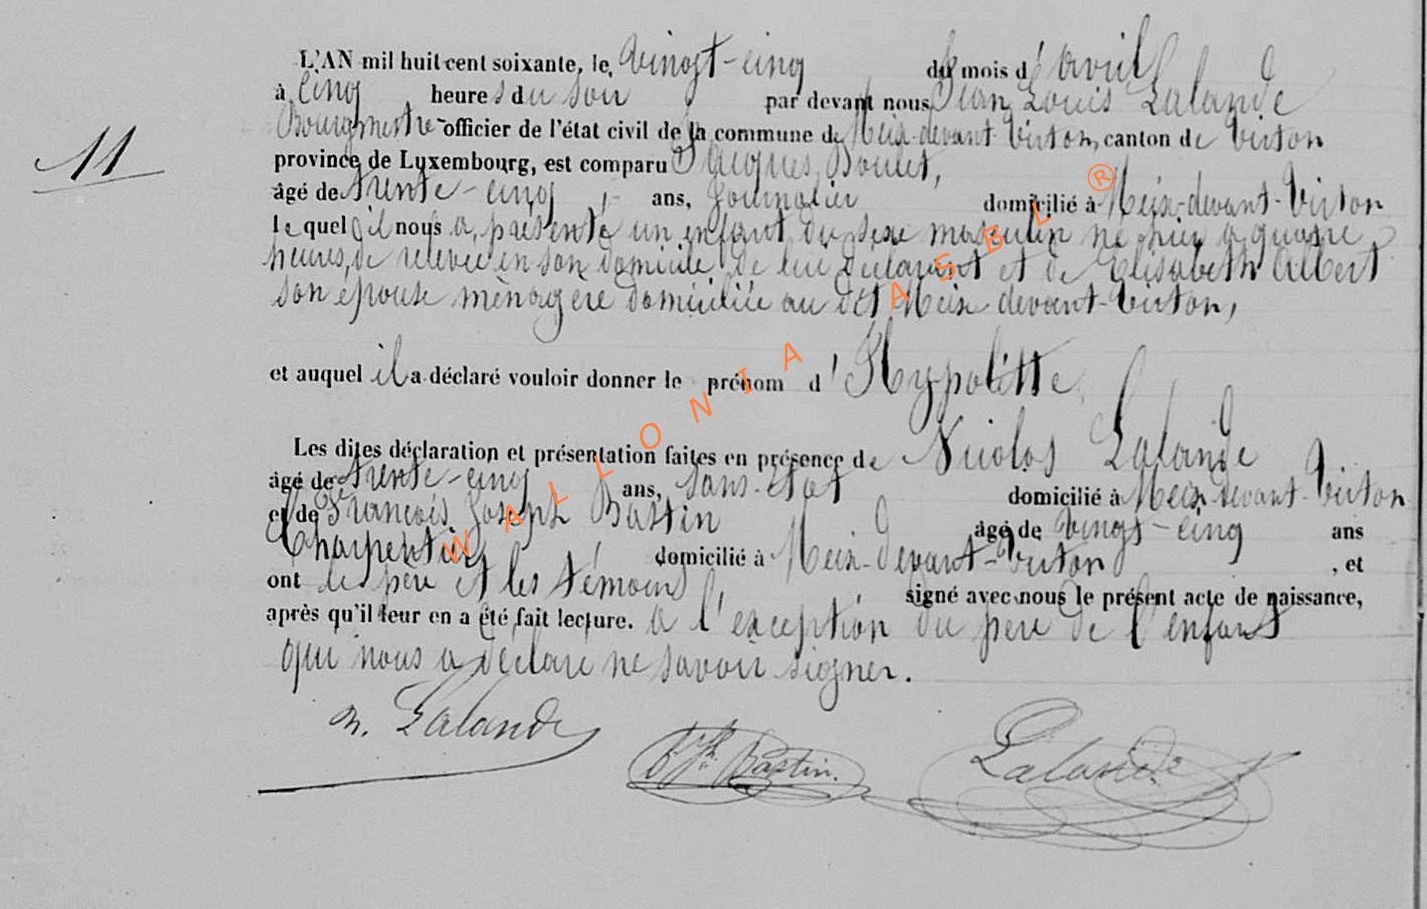 L'AN mil huit cent soixante, le, vingt-cinq du mois d'avril
à cinq heures du soir par devant nous Jean Louis Lalande
Bourgmestre officier de l'état civil de la commune de Meix-devant-Virton, canton de Virton
11
province de Luxembourg, est comparu Jacques Boulet,
âgé de trente-cinq ans, journalier domicilié à Meix-devant-Virton
lequel il nous a présenté un enfant du sexe masculin né hier à quatre
heures, de relevée en son domicile, de lui déclarant et de Elisabeth Albert
son épouse ménagère domiciliée au dit Meix devant-Virton,
et auquel il a déclaré vouloir donner le prénom d'Hypolitte
Les dites déclaration et présentation faites en présence de Nicolas Lalande
âgé de trente-cinq ans, sans-état domicilié à Meix devant-Virton
et de François Joseph Bastin âgé de vingt-cinq ans
Charpentier domicilié à Meix-devant-Virton, et
ont le père et les témoins, signé avec nous le présent acte de naissance,
après qu'il leur en a été fait lecture. à l'exception du père de l'enfant
qui nous a déclaré ne savoir signer.
n. Lalande Bastin. Lalande
WALLONIA ASBL ®